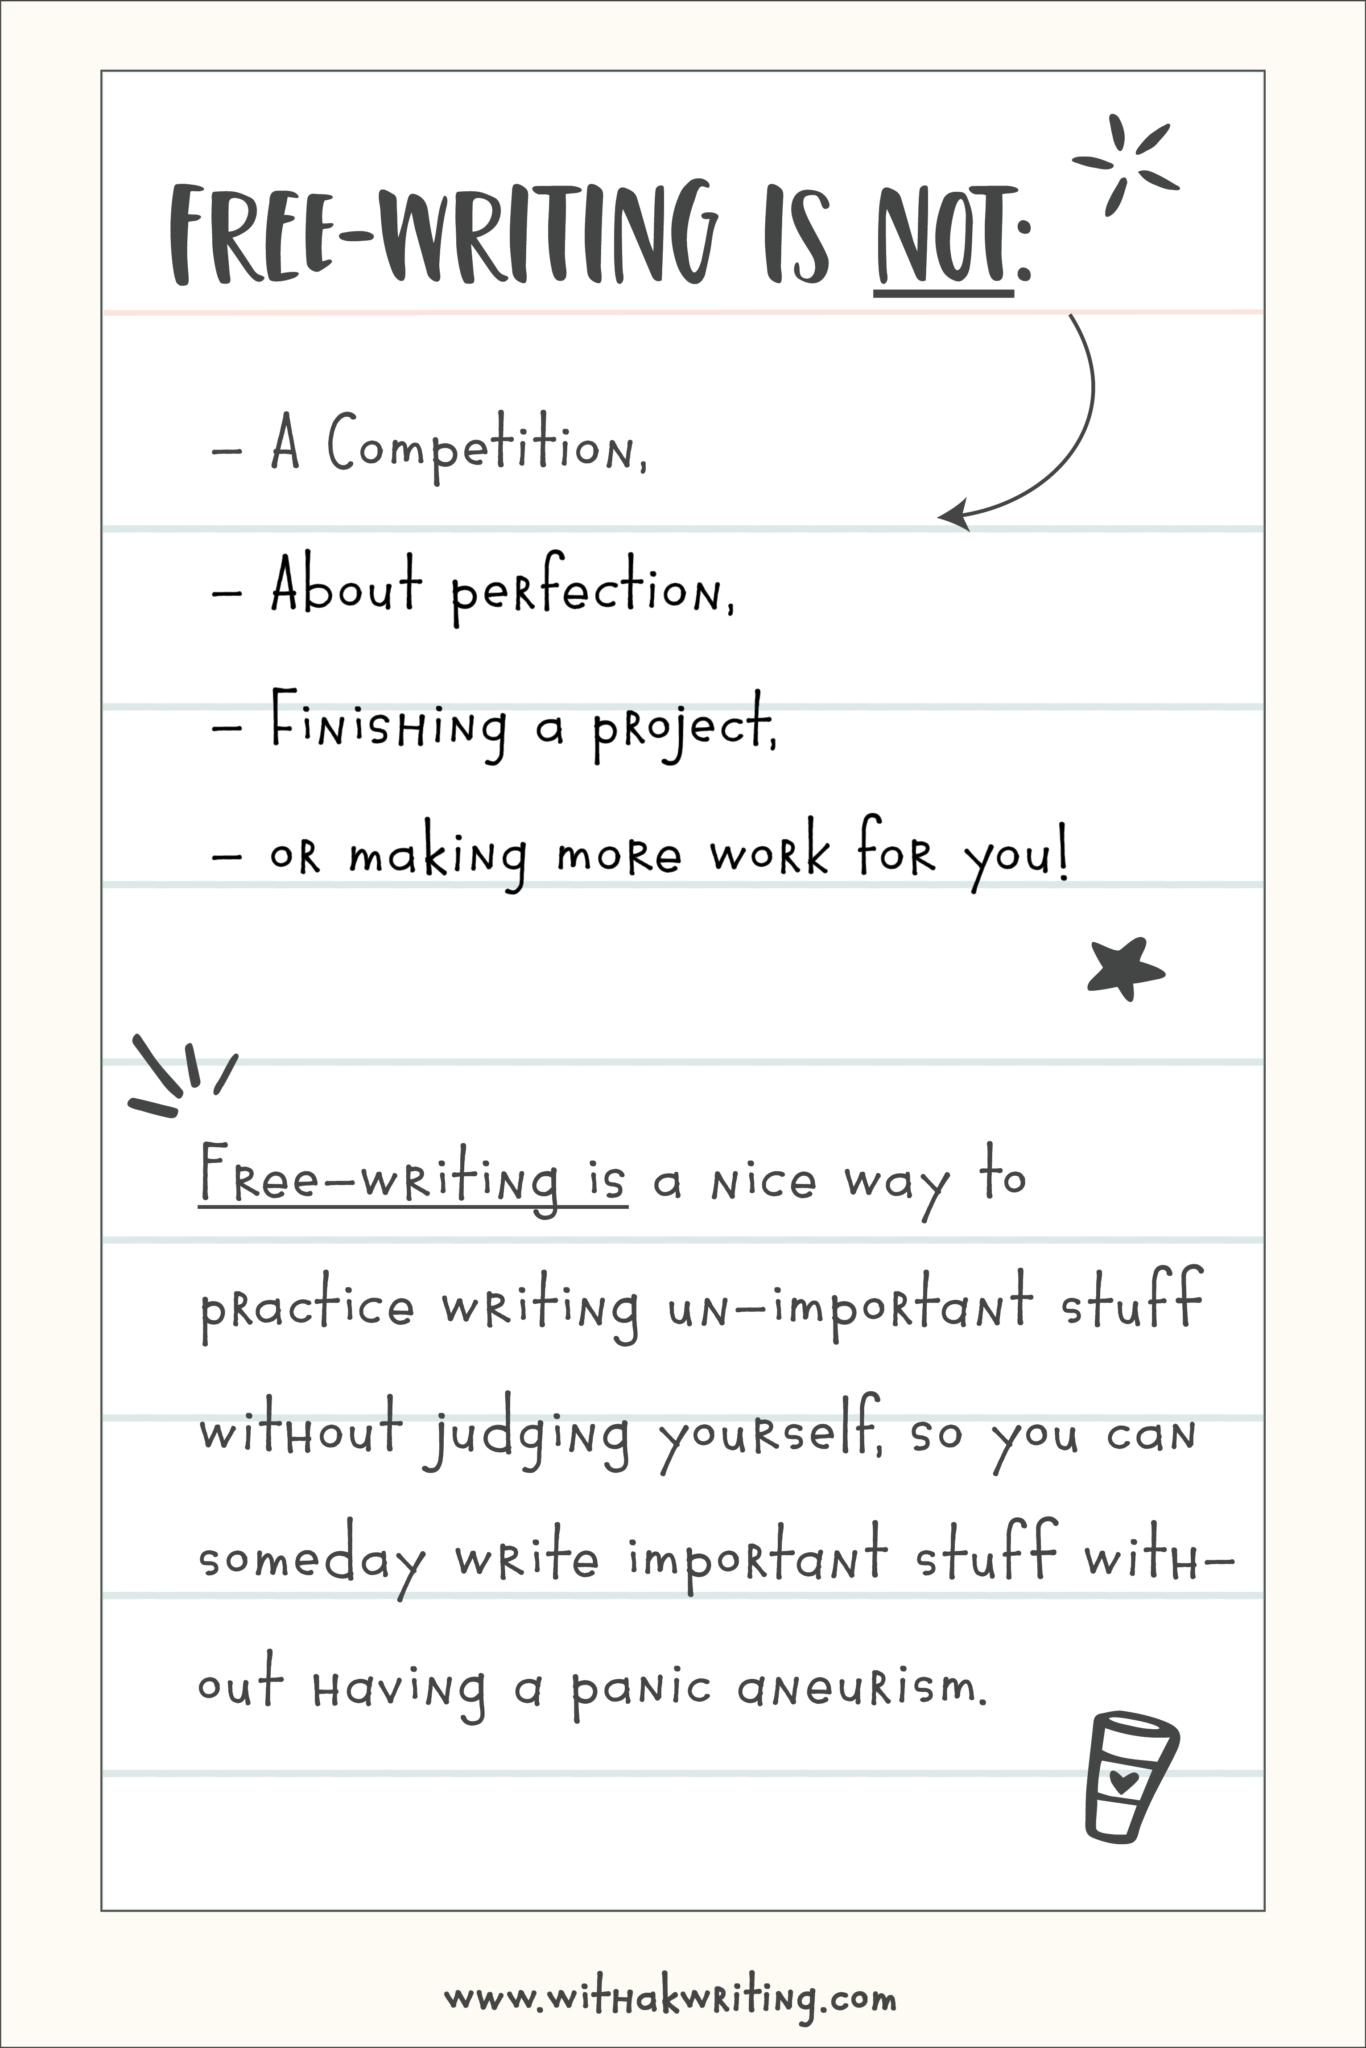 FREE-WRITING IS NOT:
- A Competition,
- About perfection,
- Finishing a project,
- or making more work for you!
Free-writing is a nice way to
practice writing un-important stuff
without judging yourself, so you can
someday write important stuff with-
out having a panic aneurism.
www.withakwriting.com